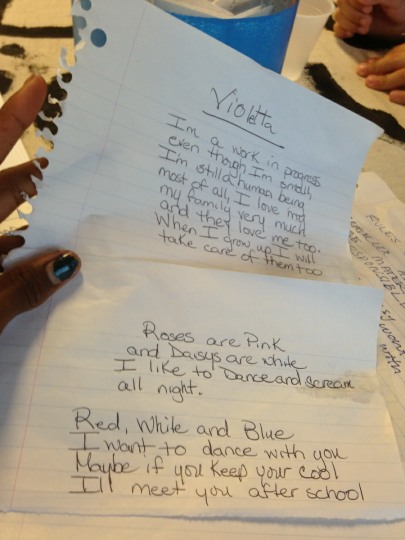 Violetta
I'm a work in progress
even though I'm small,
I'm still a human being
most of all, I love me
my family very much
and they love me too.
When I grow up I will
take care of them too
Roses are Pink
and Daisys are white
I like to Dance and scream
all night.
Red, White and Blue
I want to dance with you
Maybe if you keep your cool
I'll meet you after school